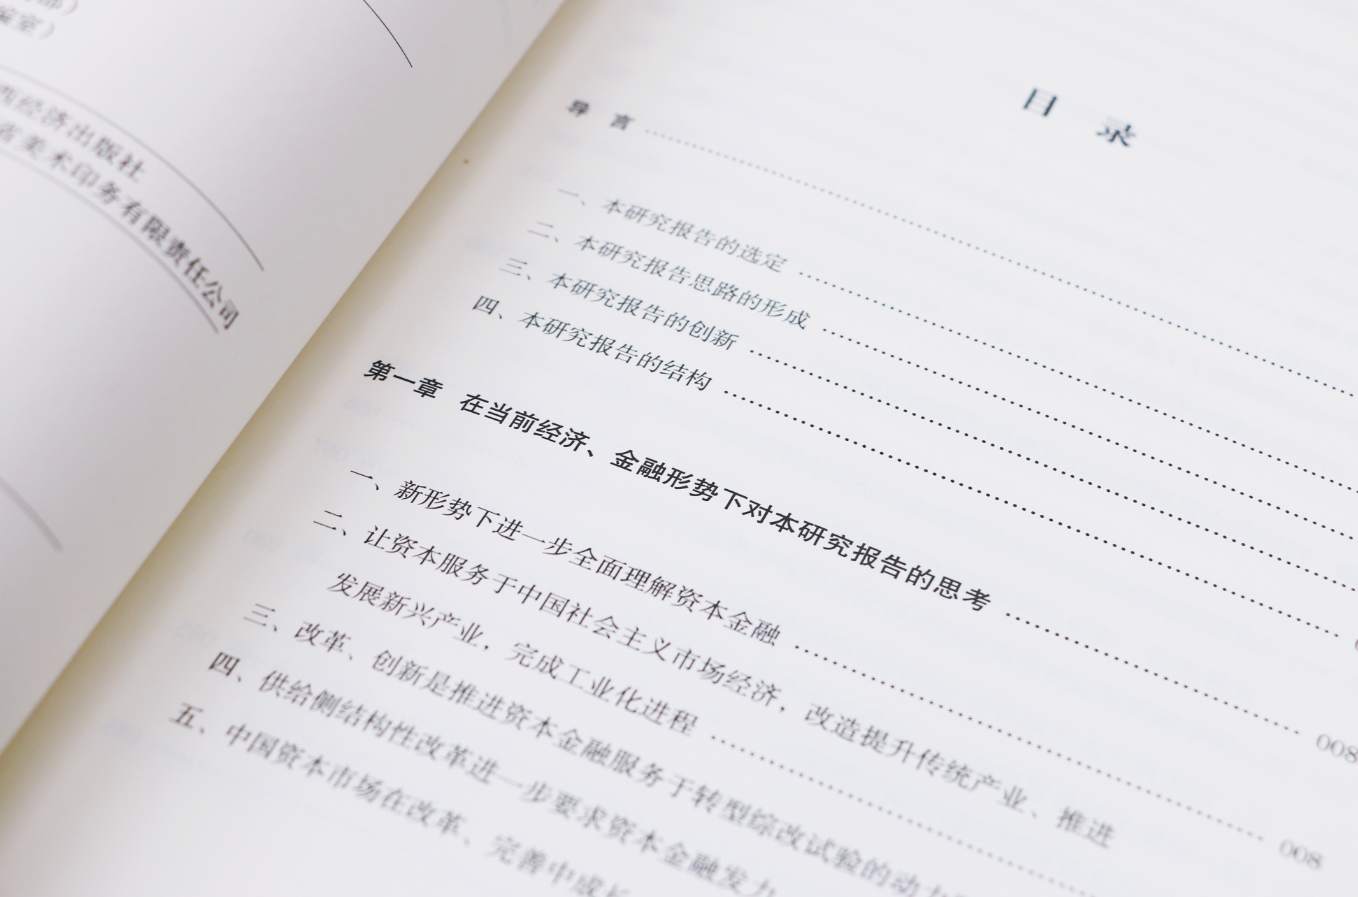 西经济出版社
省美术印务有限责任公司
目 录
导 言
一、本研究报告的选定
二、本研究报告思路的形成
三、本研究报告的创新
四、本研究报告的结构
第一章 在当前经济、金融形势下对本研究报告的思考 008
一、新形势下进一步全面理解资本金融 008
二、让资本服务于中国社会主义市场经济，改造提升传统产业、推进
发展新兴产业，完成工业化进程
三、改革、创新是推进资本金融服务于转型综改试验的动力
四、供给侧结构性改革进一步要求资本金融发力
五、中国资本市场在改革、完善中成长